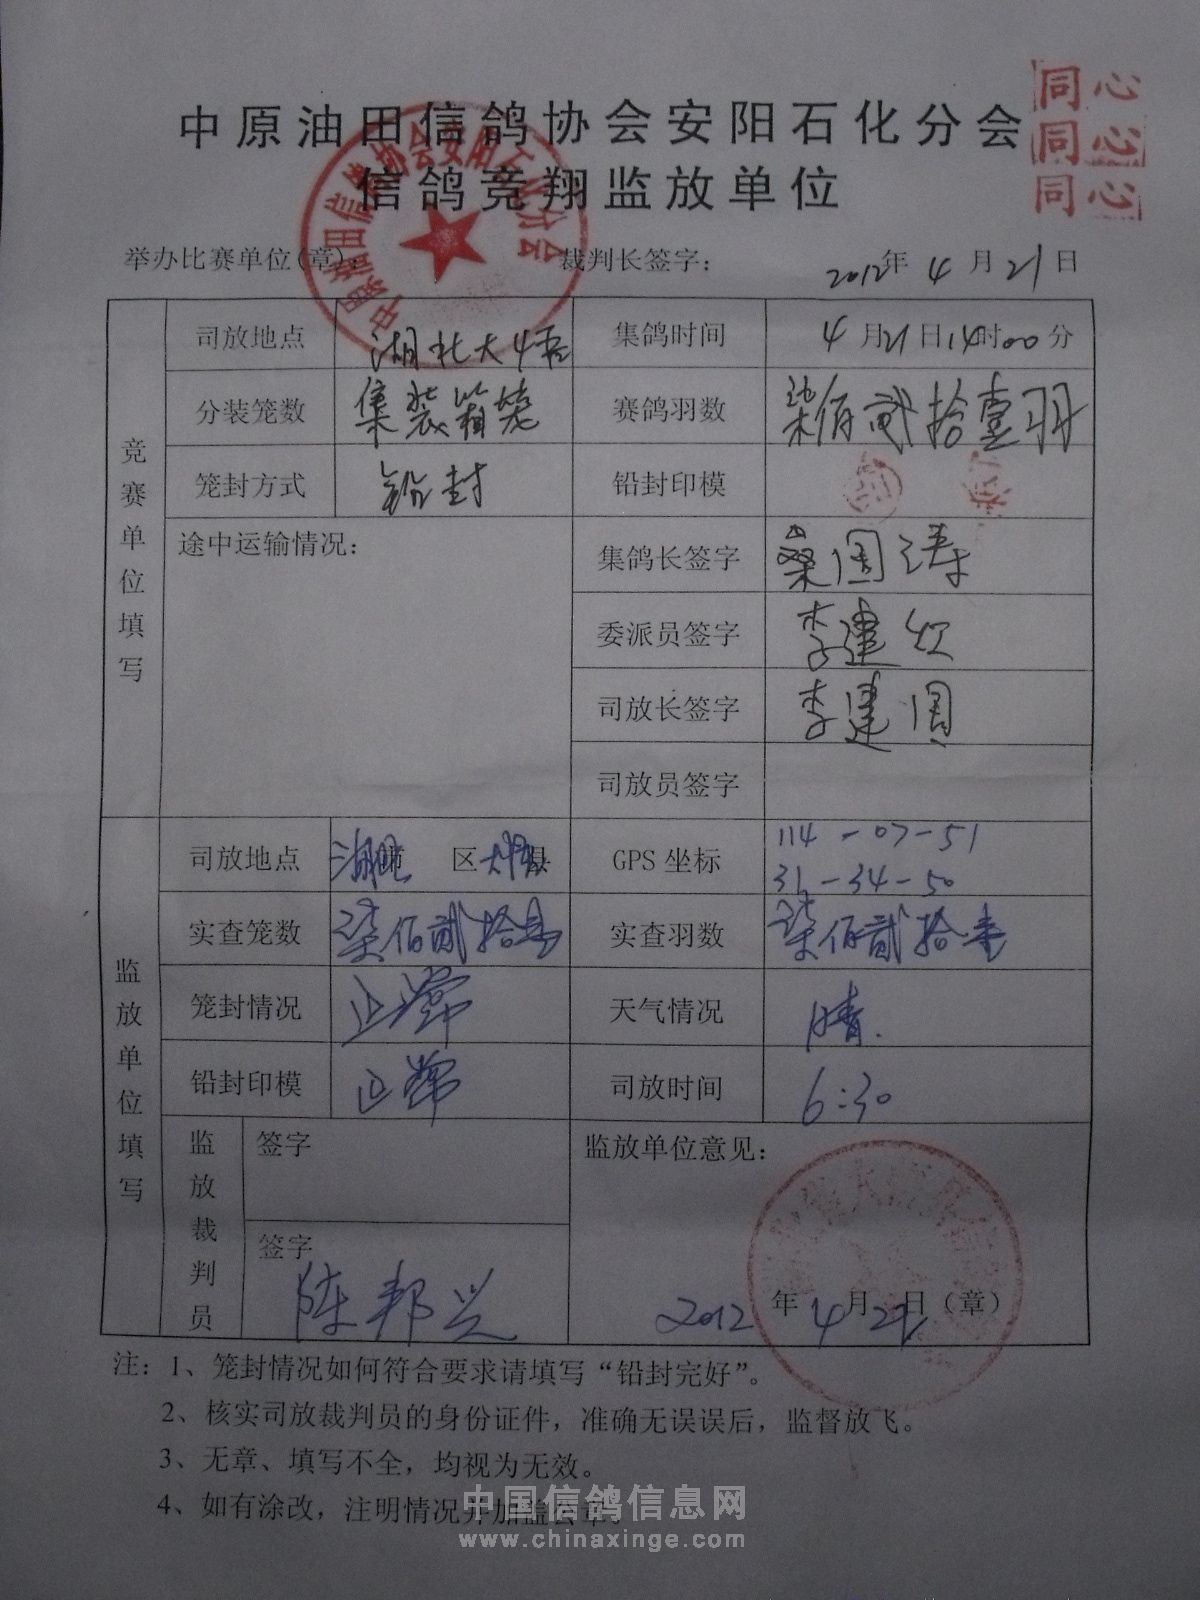 同心
同心
同心
中原油田信鸽协会安阳石化分会
信鸽竞翔监放单位
举办比赛单位(章): 裁判长签字: 2012年 4 月 21 日
竞赛单位填写
司放地点 湖北大悟 集鸽时间 4 月 21 日 14 时 00 分
分装笼数 集装箱笼 赛鸽羽数 柒佰贰拾壹羽
笼封方式 铅封 铅封印模
途中运输情况: 集鸽长签字 桑国涛
委派员签字 李建
司放长签字 李建国
司放员签字
监放单位填写
司放地点 湖北市 区 大悟县 GPS 坐标 114-07-51
31-34-50
实查笼数 柒佰贰拾壹 实查羽数 柒佰贰拾壹
笼封情况 正常 天气情况 晴.
铅封印模 正常 司放时间 6:30
监放裁判员 签字 监放单位意见:
签字 陈邦兴
2012 年 4 月 22 日 (章)
注: 1、笼封情况如何符合要求请填写“铅封完好”。
2、核实司放裁判员的身份证件，准确无误误后，监督放飞。
3、无章、填写不全，均视为无效。
4、如有涂改，注明情况并加盖公章。
中国信鸽信息网
www.chinaxinge.com